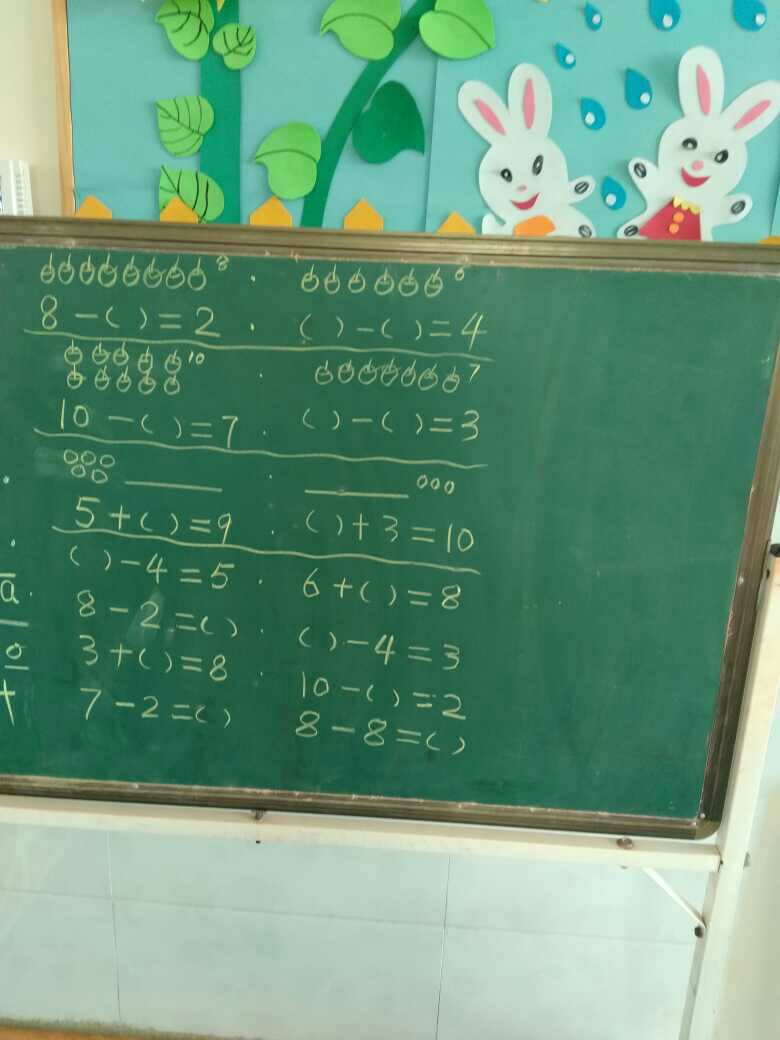 8 6
8 - ( ) = 2 . ( ) - ( ) = 4
10 7
10 - ( ) = 7 . ( ) - ( ) = 3
5 + ( ) = 9 . ( ) + 3 = 10
( ) - 4 = 5 . 6 + ( ) = 8
8 - 2 = ( ) . ( ) - 4 = 3
3 + ( ) = 8 . 10 - ( ) = 2
7 - 2 = ( ) 8 - 8 = ( )